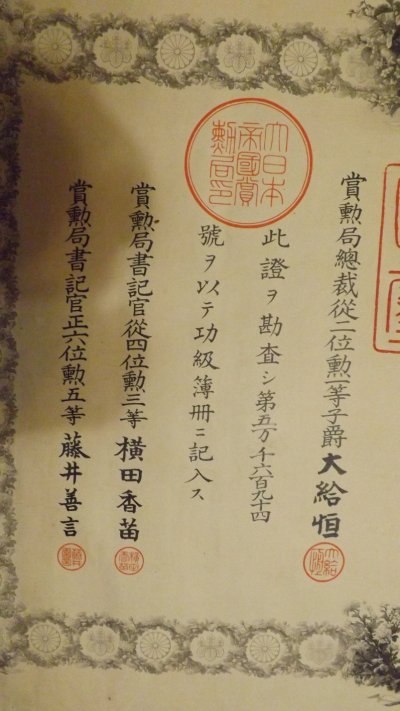 賞勲局總裁從二位勲一等子爵大給恒
大日本帝國賞勲局印
此證ヲ勘査シ第五万千六百九十四
號ヲ以テ功級簿册ニ記入ス
賞勲局書記官從四位勲三等横田香苗
賞勲局書記官正六位勲五等藤井善言